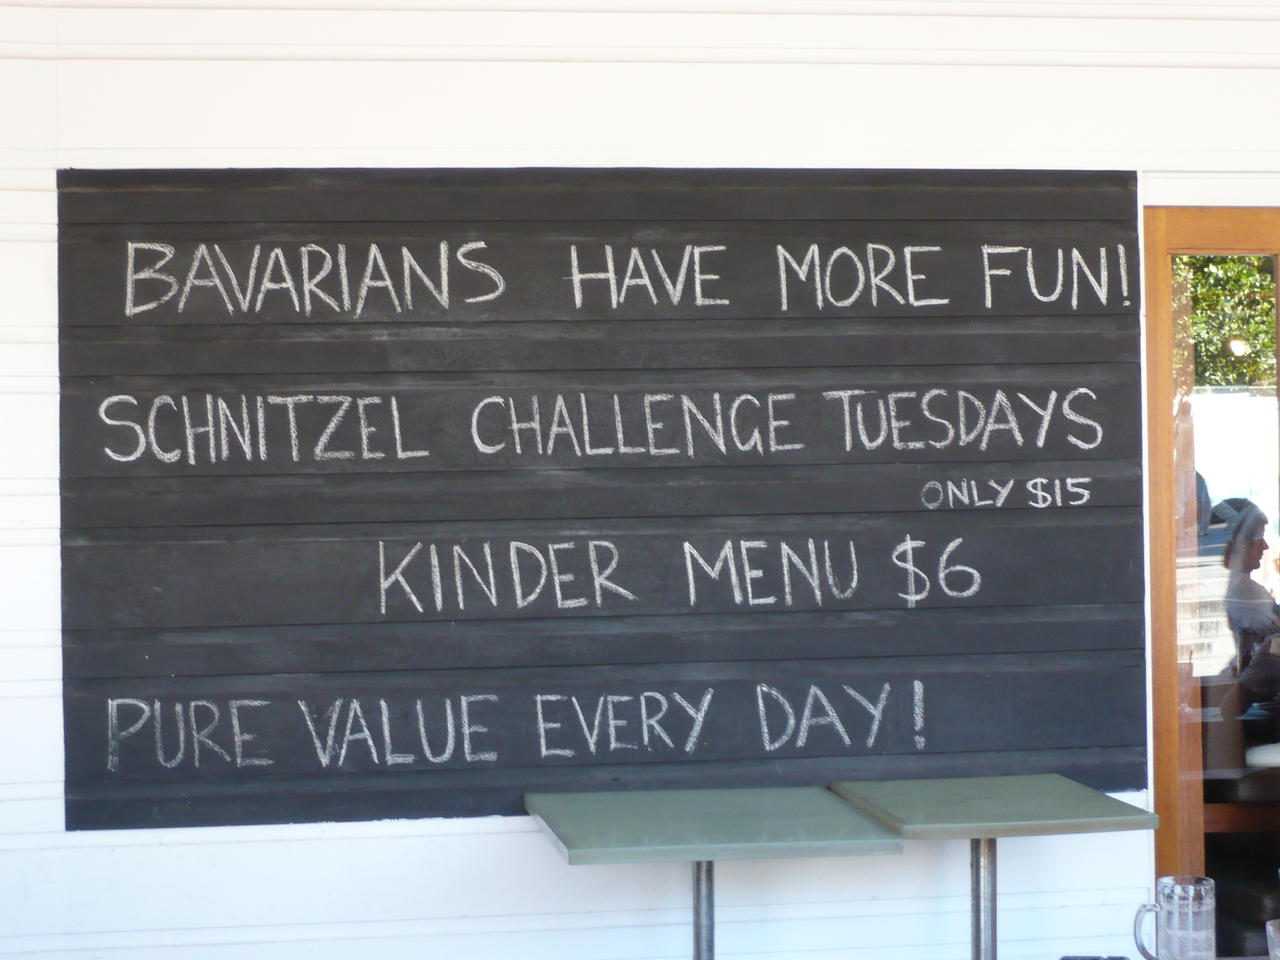 BAVARIANS HAVE MORE FUN!
SCHNITZEL CHALLENGE TUESDAYS
ONLY $15
KINDER MENU $6
PURE VALUE EVERY DAY!